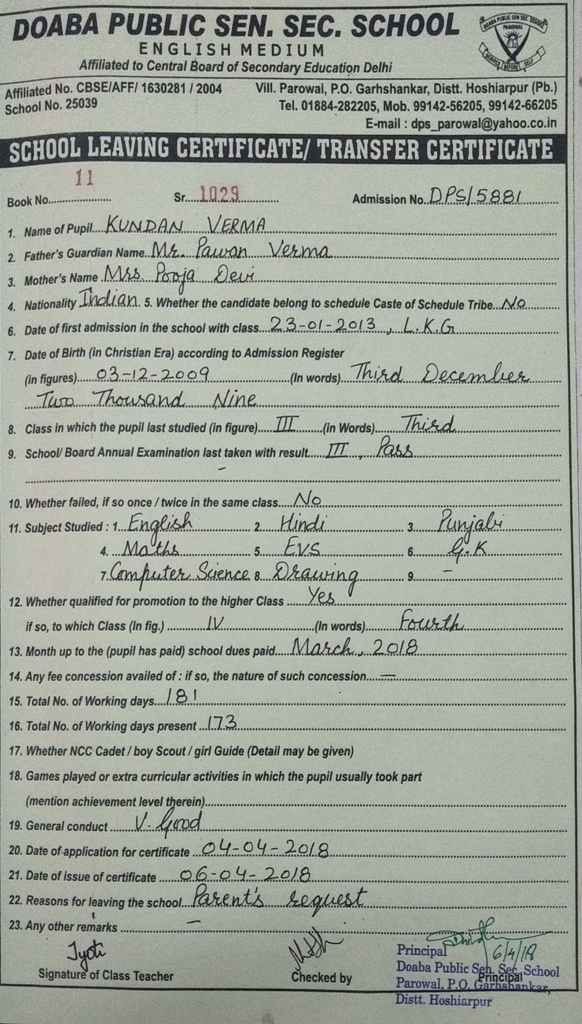 DOABA PUBLIC SEN. SEC. SCHOOL
ENGLISH MEDIUM
Affiliated to Central Board of Secondary Education Delhi
Affiliated No. CBSE/AFF/ 1630281 / 2004
School No. 25039
Vill. Parowal, P.O. Garhshankar, Distt. Hoshiarpur (Pb.)
Tel. 01884-282205, Mob. 99142-56205, 99142-66205
E-mail : dps_parowal@yahoo.co.in
SCHOOL LEAVING CERTIFICATE/ TRANSFER CERTIFICATE
Book No. 11 Sr. 1029 Admission No. DPS/5881
1. Name of Pupil KUNDAN VERMA
2. Father's Guardian Name Mr. Pawan Verma
3. Mother's Name Mrs Pooja Devi
4. Nationality Indian 5. Whether the candidate belong to schedule Caste of Schedule Tribe No
6. Date of first admission in the school with class 23-01-2013, L.K.G
7. Date of Birth (in Christian Era) according to Admission Register
(in figures) 03-12-2009 (In words) Third December
Two Thousand Nine
8. Class in which the pupil last studied (in figure) III (in Words) Third
9. School/ Board Annual Examination last taken with result III, Pass
-
10. Whether failed, if so once / twice in the same class No
11. Subject Studied : 1. English 2. Hindi 3. Punjabi
4. Maths 5. EVS 6. G.K
7. Computer Science 8. Drawing 9. -
12. Whether qualified for promotion to the higher Class Yes
if so, to which Class (In fig.) IV (In words) Fourth
13. Month up to the (pupil has paid) school dues paid March, 2018
14. Any fee concession availed of : if so, the nature of such concession -
15. Total No. of Working days 181
16. Total No. of Working days present 173
17. Whether NCC Cadet / boy Scout / girl Guide (Detail may be given)
18. Games played or extra curricular activities in which the pupil usually took part
(mention achievement level therein)
19. General conduct V. Good
20. Date of application for certificate 04-04-2018
21. Date of issue of certificate 06-04-2018
22. Reasons for leaving the school Parent's request
23. Any other remarks -
Jyoti
Signature of Class Teacher
Checked by
6/4/18
Principal
Principal
Doaba Public Sen. Sec. School
Parowal, P.O. Garhshankar,
Distt. Hoshiarpur